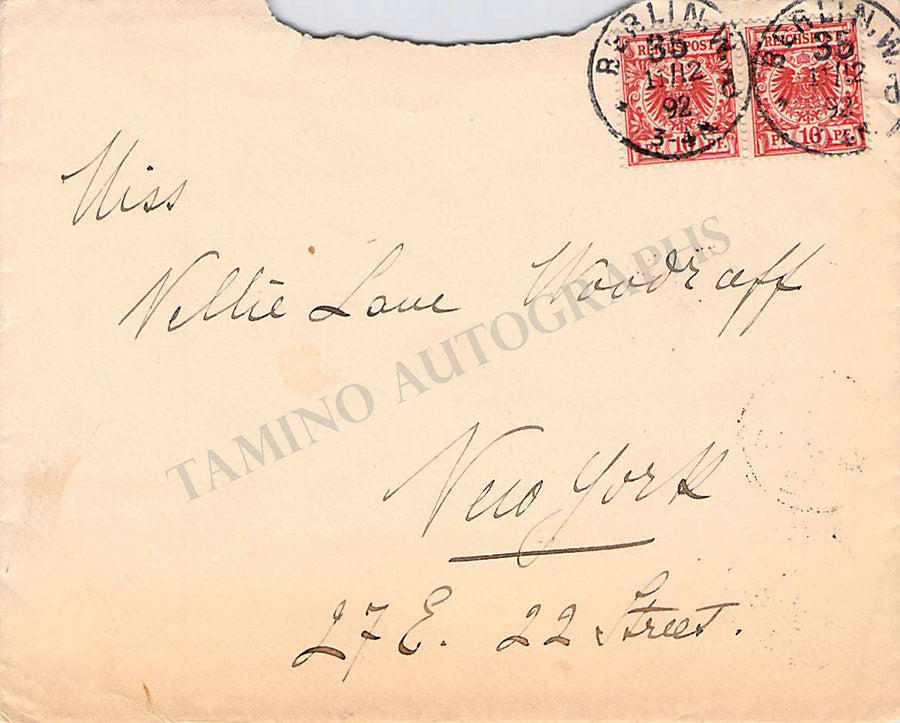 BERLIN, W.
35
11/12
92
3-4 N
REICHSPOST
PF 10 PF
BERLIN, W.
35
11/12
92
REICHSPOST
PF 10 PF
Miss
Nellie Lane Woodruff
New York
27 E. 22 Street.
TAMINO AUTOGRAPHS